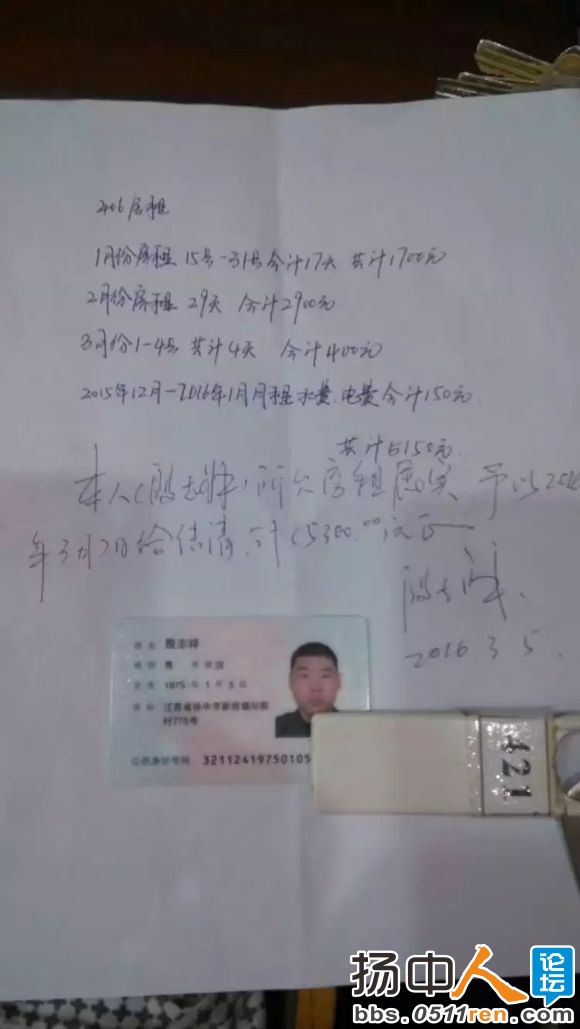 206房租
1月份房租 15号-31号合计17天 共计1700元
2月份房租 29天 合计2900元
3月份1-4号 共计4天 合计400元
2015年12月-2016年1月月租 水费、电费合计150元.
共计5150元.
本人(殷志祥)所欠房租属实 予以2016
年3月7日给结清,计(5300.00元正
殷志祥.
2016.3 5.
姓名 殷志祥
性别 男 民族 汉
出生 1975 年 1 月 5 日
住址 江苏省扬中市新坝镇
村775号
公民身份号码 32112419750105
421
扬中人 论坛
bbs.0511ren.com